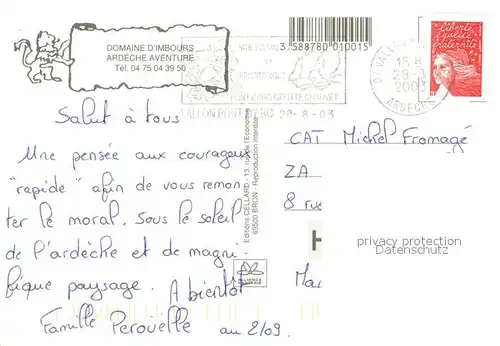 DOMAINE D'IMBOURS
ARDÈCHE AVENTURE
Tél. 04 75 04 39 50
3 588780 010015
28-8-03
liberté
égalité
fraternité
2003
ARDECHE
Salut à tous
Une pensée aux courageux
"rapide" afin de vous remon
ter le moral. Sous le soleil
de l'ardèche et de magni
fique paysage. A bientôt
Famille Perouelle au 2/09.
Editions CELLARD - 13, rue de l'Economie
69500 BRON - Reproduction interdite
CAT Michel Fromagé
ZA
8 rue
privacy protection
Datenschutz
Mar